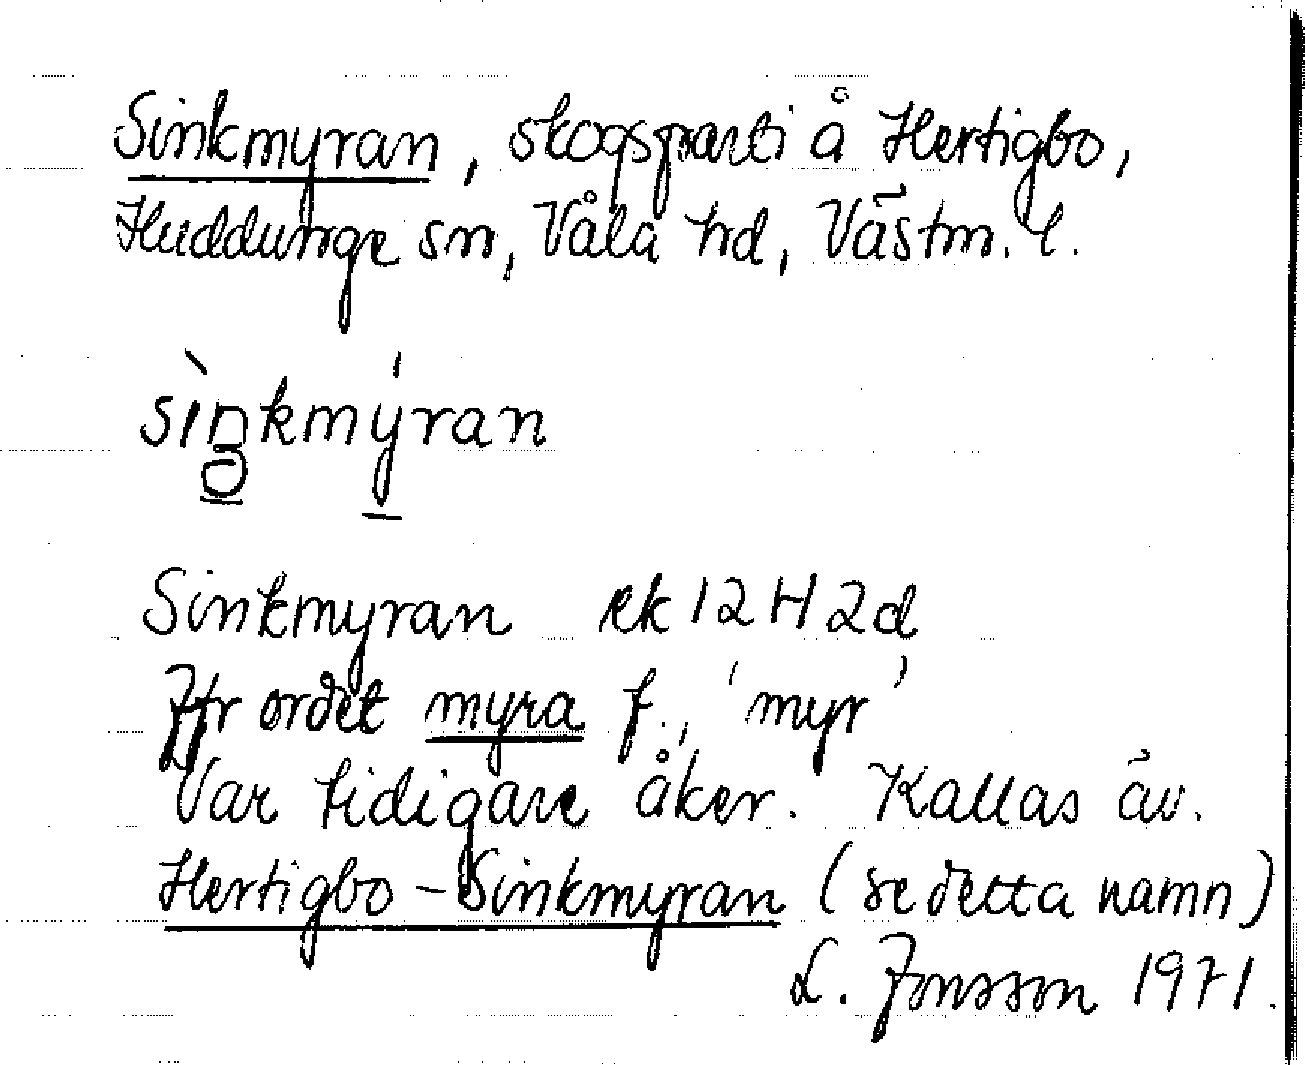 Sinkmyran, skogsparti å Hertigbo,
Huddunge sn, Våla hd, Västm. l.
sìŋkmýran
Sinkmyran ek 12 H 2d
Jfr ordet myra f., 'myr'
Var tidigare åker. Kallas äv.
Hertigbo-Sinkmyran (se detta namn)
L. Jonsson 1971.